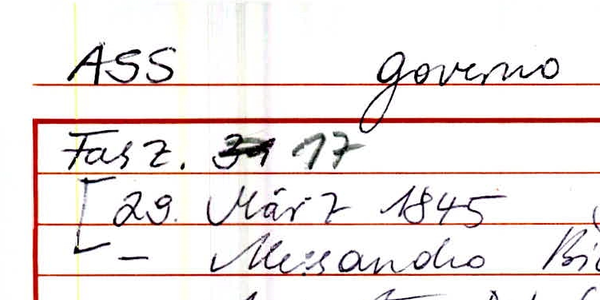 ASS governo
Fasz. 17
[29. März 1845
- Alessandro